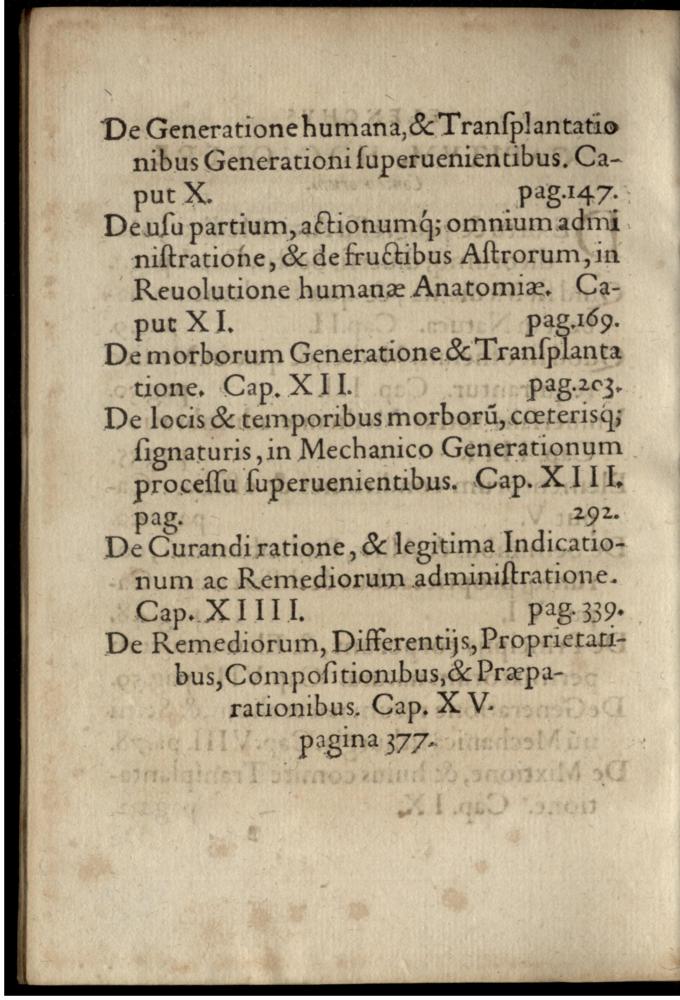 De Generatione humana, & Tranſplantatio
nibus Generationi ſuperuenientibus. Ca-
put X. pag.147.
De uſu partium, actionumq́; omnium admi
niſtratione, & de fructibus Aſtrorum, in
Reuolutione humanæ Anatomiæ. Ca-
put XI. pag.169.
De morborum Generatione & Tranſplanta
tione. Cap. XII. pag.203.
De locis & temporibus morborũ, cœterisq;
ſignaturis, in Mechanico Generationum
proceſſu ſuperuenientibus. Cap. XIII.
pag. 292.
De Curandi ratione, & legitima Indicatio-
num ac Remediorum adminiſtratione.
Cap. XIIII. pag. 339.
De Remediorum, Differentijs, Proprietati-
bus, Compoſitionibus, & Præpa-
rationibus. Cap. XV.
pagina 377.